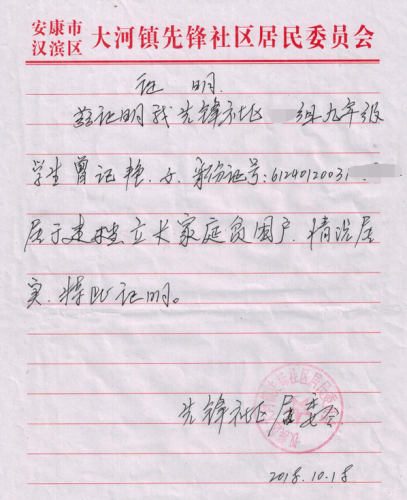 安康市
汉滨区 大河镇先锋社区居民委员会
证 明
兹证明我先锋社区 组九年级
学生曾记艳.女.身份证号:61240120031
属于建档立卡家庭贫困户.情况属
实.特此证明。
先锋社区居委会
2018.10.18